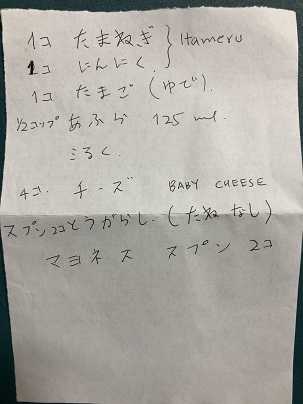 1コ たまねぎ } Itameru
1コ にんにく.
1コ たまご (ゆで).
1/2コップ あふら 125 ml.
みるく.
4コ. チーズ BABY CHEESE
スプン2コとうがらし. (たねなし)
マヨネス スプン 2コ